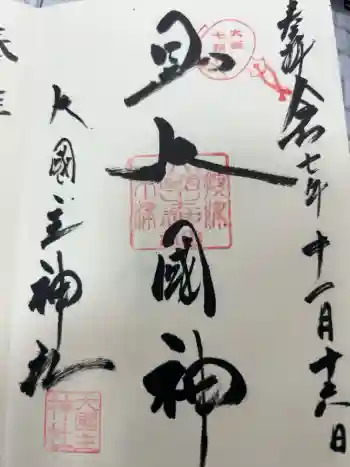 奉拝 令和七年十一月十六日
大國神
大國主神社
大国
七福
大國主
神社